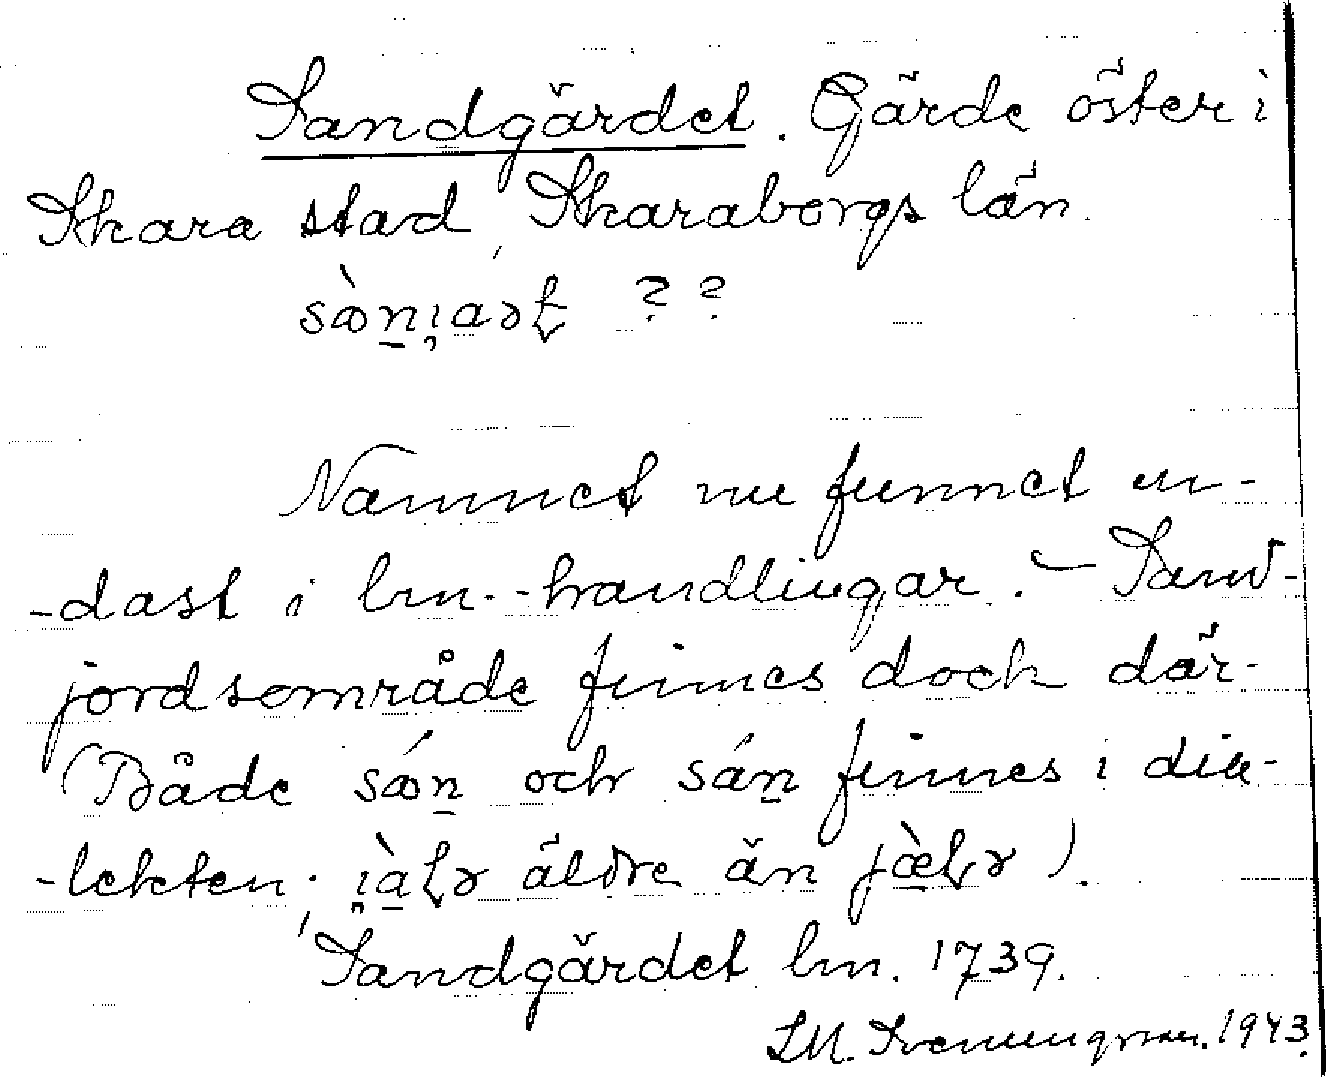 Sandgärdet. Gärde öster i
Skara stad, Skaraborgs län.
??
Namnet nu funnet en-
-dast i lm.-handlingar. – Sand-
jordsområde finnes doch där.
(Både och finnes i dia-
-lekten; äldre än ).
Sandgärdet lm. 1739.
1943.